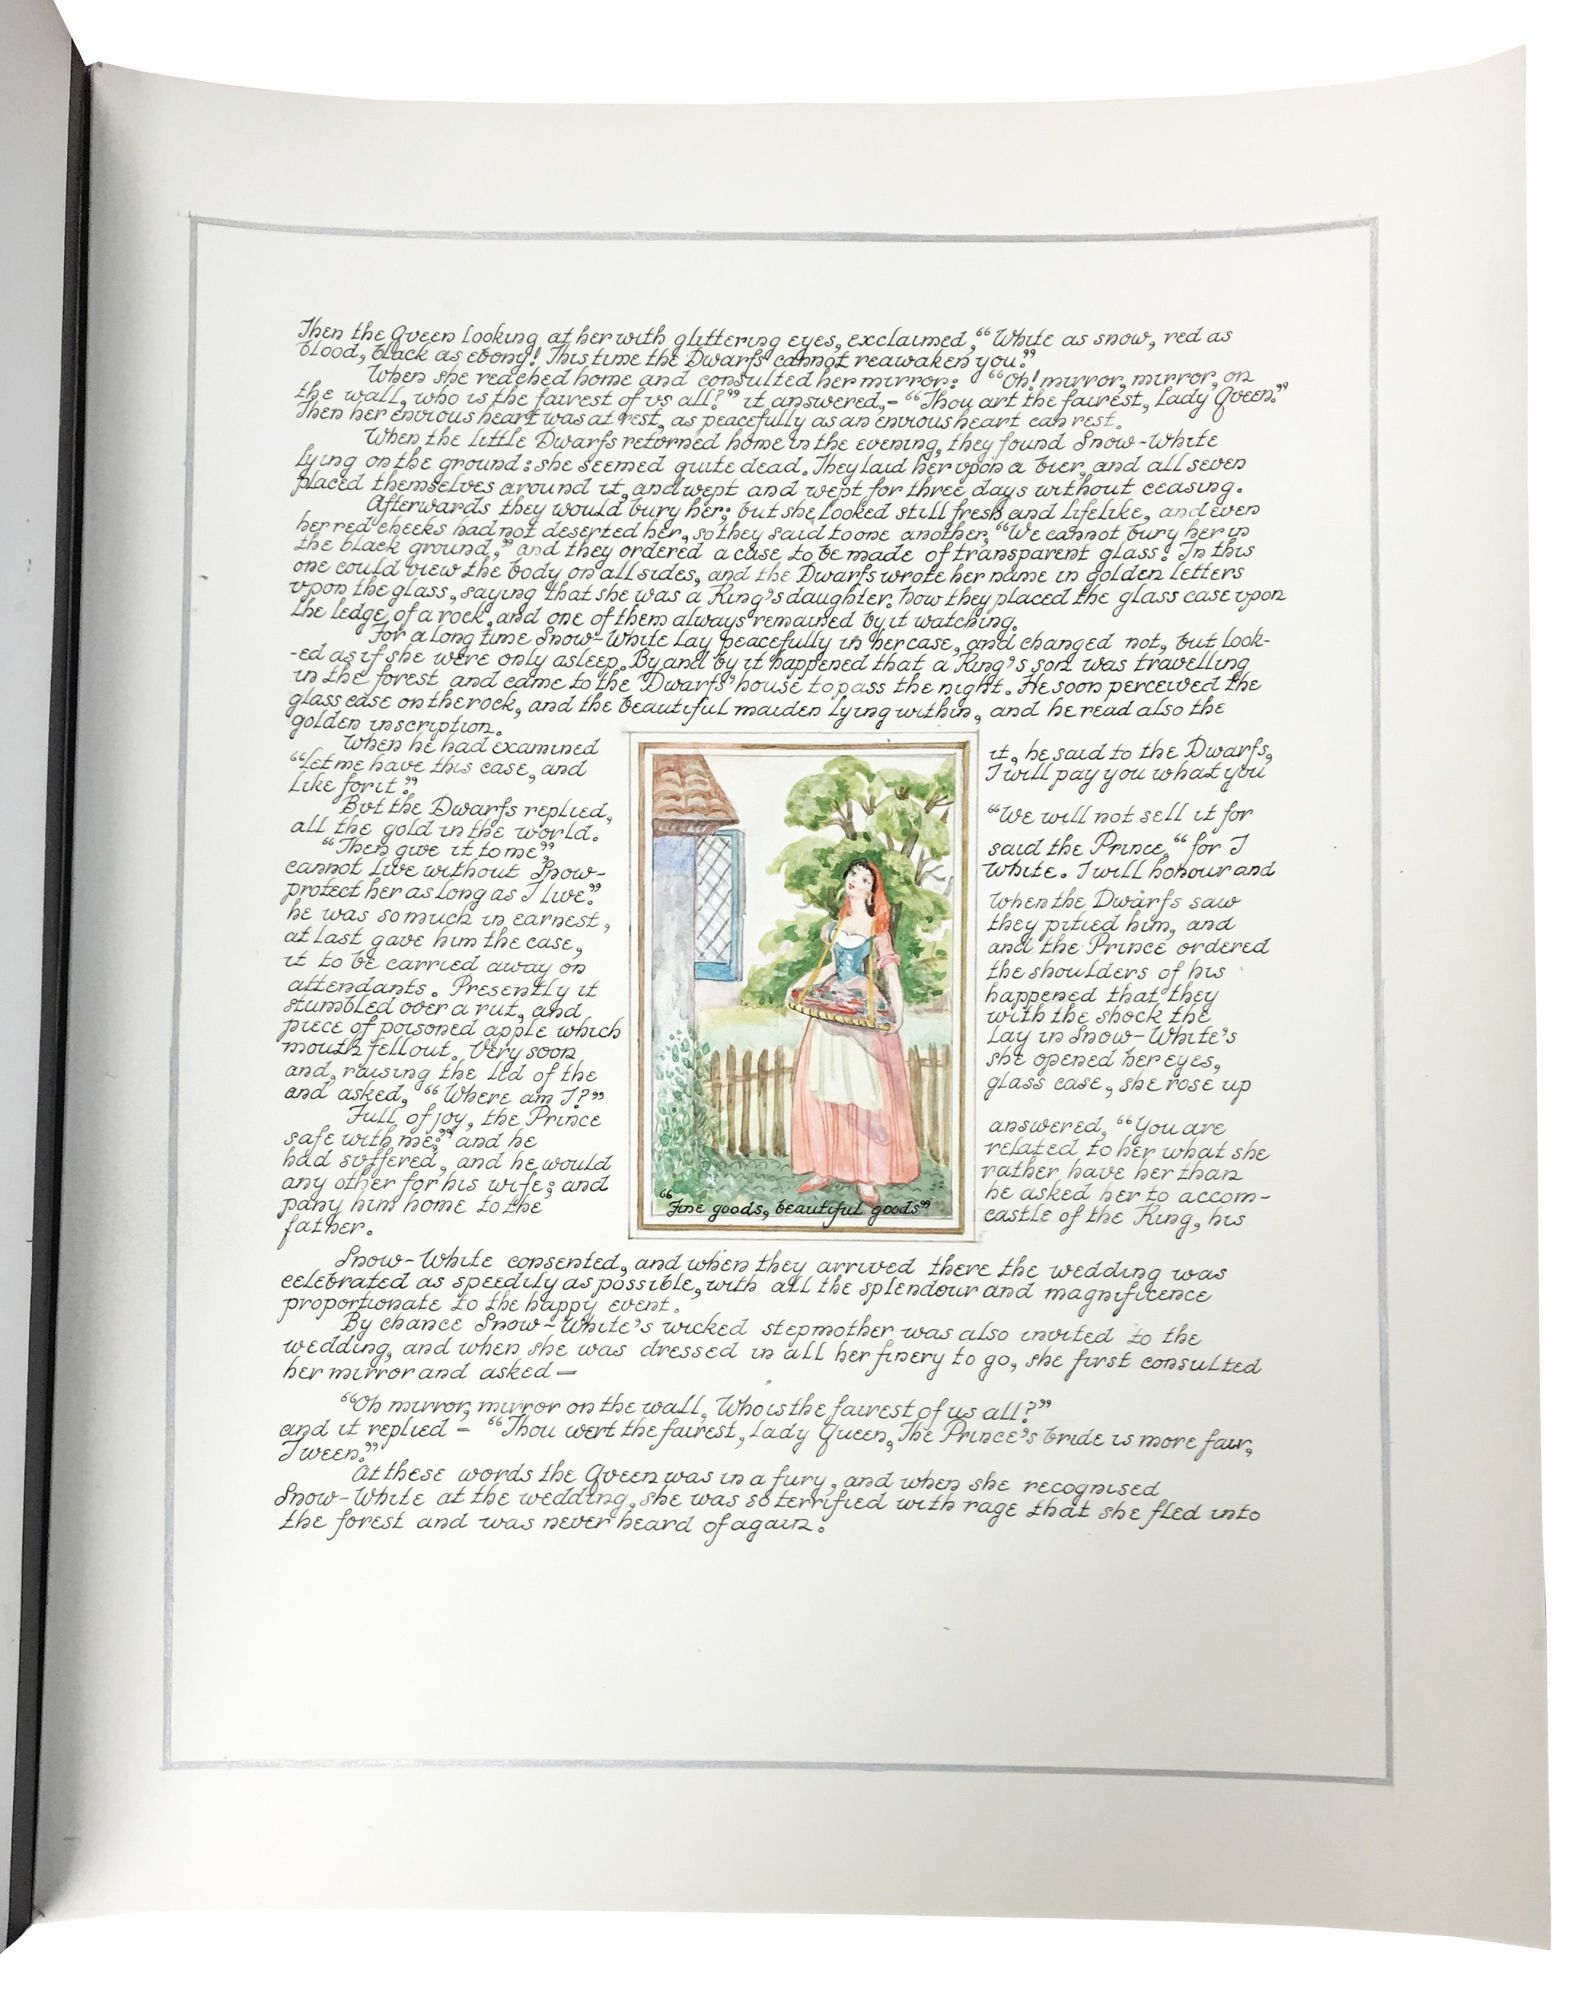 Then the Queen looking at her with glittering eyes, exclaimed, “White as snow, red as
blood, black as ebony! This time the Dwarfs cannot reawaken you.”
When she reached home and consulted her mirror: “Oh! mirror, mirror, on
the wall, who is the fairest of us all?” it answered,- “Thou art the fairest, Lady Queen.”
Then her envious heart was at rest, as peacefully as an envious heart can rest.
When the little Dwarfs returned home in the evening, they found Snow-White
lying on the ground: she seemed quite dead. They laid her upon a bier, and all seven
placed themselves around it, and wept and wept for three days without ceasing.
Afterwards they would bury her; but she looked still fresh and lifelike, and even
her red cheeks had not deserted her, so they said to one another, “We cannot bury her in
the black ground;” and they ordered a case to be made of transparent glass: In this
one could view the body on all sides, and the Dwarfs wrote her name in golden letters
upon the glass, saying that she was a King's daughter. Now they placed the glass case upon
the ledge of a rock, and one of them always remained by it watching.
For a long time Snow-White lay peacefully in her case, and changed not, but look-
-ed as if she were only asleep. By and by it happened that a King's son was travelling
in the forest and came to the Dwarfs' house to pass the night. He soon perceived the
glass case on the rock, and the beautiful maiden lying within, and he read also the
golden inscription.
When he had examined it, he said to the Dwarfs,
“Let me have this case, and I will pay you what you
like for it.”
But the Dwarfs replied, “We will not sell it for
all the gold in the world.
“Then give it to me”, said the Prince, “for I
cannot live without Snow- White. I will honour and
protect her as long as I live.” When the Dwarfs saw
he was so much in earnest, they pitied him, and
at last gave him the case, and the Prince ordered
it to be carried away on the shoulders of his
attendants. Presently it happened that they
stumbled over a rut, and with the shock the
piece of poisoned apple which lay in Snow-White's
mouth fell out. Very soon she opened her eyes,
and, raising the lid of the glass case, she rose up
and asked, “Where am I?”
Full of joy, the Prince answered, “You are
safe with me;” and he related to her what she
had suffered, and he would rather have her than
any other for his wife; and he asked her to accom-
pany him home to the castle of the King, his
father.
“Fine goods, beautiful goods”
Snow-White consented, and when they arrived there the wedding was
celebrated as speedily as possible, with all the splendour and magnificence
proportionate to the happy event.
By chance Snow-White's wicked stepmother was also invited to the
wedding, and when she was dressed in all her finery to go, she first consulted
her mirror and asked—
“Oh mirror, mirror on the wall, Who is the fairest of us all?”
and it replied - “Thou wert the fairest, Lady Queen, The Prince's bride is more fair,
I ween.”
At these words the Queen was in a fury, and when she recognised
Snow-White at the wedding, she was so terrified with rage that she fled into
the forest and was never heard of again.